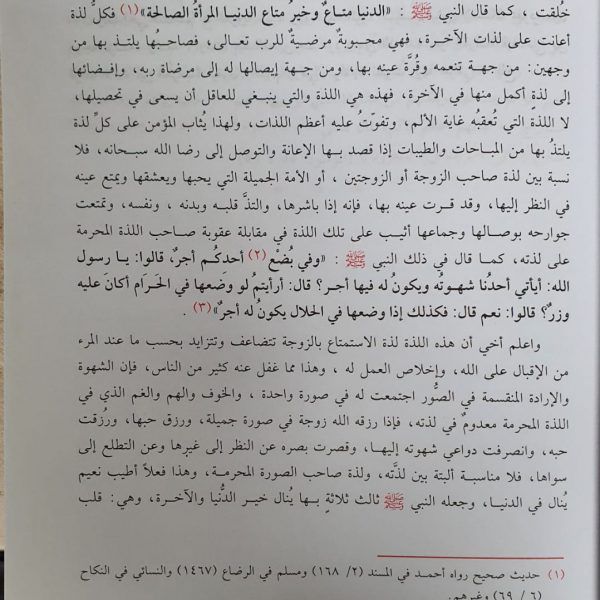 خُلقت ، كما قال النبي ﷺ : «الدنيا متاعٌ وخيرُ متاع الدنيا المرأةُ الصالحة»(١) فكلُّ لذة
أعانت على لذات الآخرة، فهي محبوبةٌ مرضيةٌ للرب تعالى، فصاحبُها يلتذ بها من
وجهين: من جهة تنعمه وقُرَّة عينه بها، ومن جهة إيصالها له إلى مرضاة ربه، وإفضائها
إلى لذةٍ أكمل منها في الآخرة، فهذه هي اللذة والتي ينبغي للعاقل أن يسعى في تحصيلها،
لا اللذة التي تُعقبُه غاية الألم، وتفوّت عليه أعظم اللذات، ولهذا يُثاب المؤمن على كلِّ لذة
يلتذُ بها من المباحات والطيبات إذا قصد بها الإعانة والتوصل إلى رضا الله سبحانه، فلا
نسبة بين لذة صاحب الزوجة أو الزوجتين ، أو الأمة الجميلة التي يحبها ويعشقها ويمتع عينه
في النظر إليها، وقد قرت عينه بها، فإنه إذا باشرها، والتذَّ قلبه وبدنه ، ونفسه، وتمتعت
جوارحه بوصالها وجماعها أثيب على تلك اللذة في مقابلة عقوبة صاحب اللذة المحرمة
على لذته، كما قال في ذلك النبي ﷺ : «وفي بُضْع(٢) أحدكُم أجرٌ، قالوا: يا رسول
الله: أيأتي أحدُنا شهوتُه ويكونُ له فيها أجر؟ قال: أرأيتمُ لو وضعها في الحَرَام أكانَ عليه
وزرٌ؟ قالوا: نعم قال: فكذلك إذا وضعها في الحلال يكونُ له أجرٌ»(٣) .
واعلم أخي أن هذه اللذة لذة الاستمتاع بالزوجة تتضاعف وتتزايد بحسب ما عند المرء
من الإقبال على الله، وإخلاص العمل له ، وهذا مما غفل عنه كثير من الناس، فإن الشهوة
والإرادة المنقسمة في الصُّور اجتمعت له في صورة واحدة ، والخوف والهم والغم الذي في
اللذة المحرمة معدومٌ في لذته، فإذا رزقه الله زوجة في صورة جميلة، ورزق حبها، ورُزقت
حبه، وانصرفت دواعي شهوته إليها، وقصرت بصره عن النظر إلى غيرها وعن التطلع إلى
سواها، فلا مناسبة ألبتة بين لذَّته، ولذة صاحب الصورة المحرمة، وهذا فعلاً أطيب نعيم
يُنال في الدنيا، وجعله النبي ﷺ ثالث ثلاثةٍ بها يُنال خير الدُّنيا والآخرة، وهي: قلب
(١) حديث صحيح رواه أحمد في المسند (٢/ ١٦٨) ومسلم في الرضاع (١٤٦٧) والنسائي في النكاح
(٦ / ٦٩) وغيرهم.